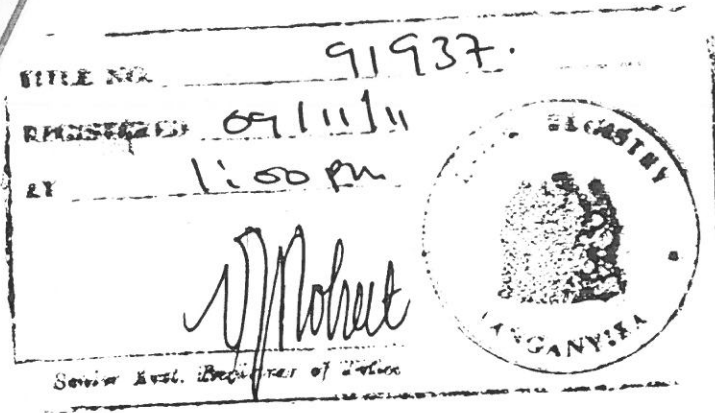 TITLE NO. 91937.
REGISTERED 09/11/11
AT 1:00 pm
Senior Asst. Registrar of Titles
REGISTRY
TANGANYIKA